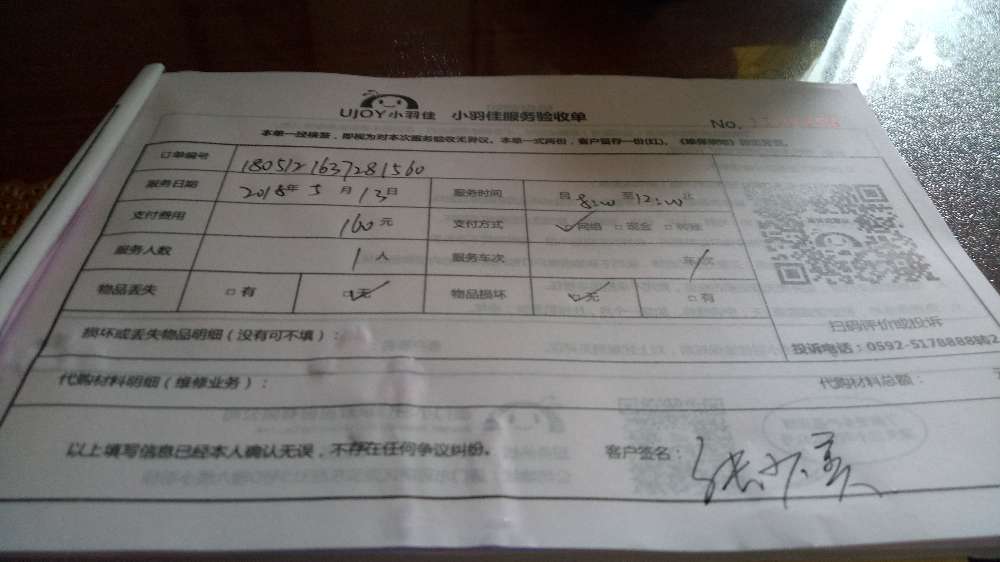 UJOY小羽佳 小羽佳服务验收单
No.
本单一经核签，即视为对本次服务验收无异议。本单一式两份，客户留存一份(红)。
订单编号 1805121637281560
服务日期 2018年5月13日 服务时间 自8:00至12:00止
支付费用 160元 支付方式 ☑网络 □现金 □转账
服务人数 1人 服务车次 / 车/次
物品丢失 □有 ☑无 物品损坏 ☑无 □有
扫码评价或投诉
损坏或丢失物品明细（没有可不填）：
投诉电话：0592-5178888转2
代购材料明细（维修业务）： 代购材料总额：
以上填写信息已经本人确认无误，不存在任何争议纠纷。 客户签名：